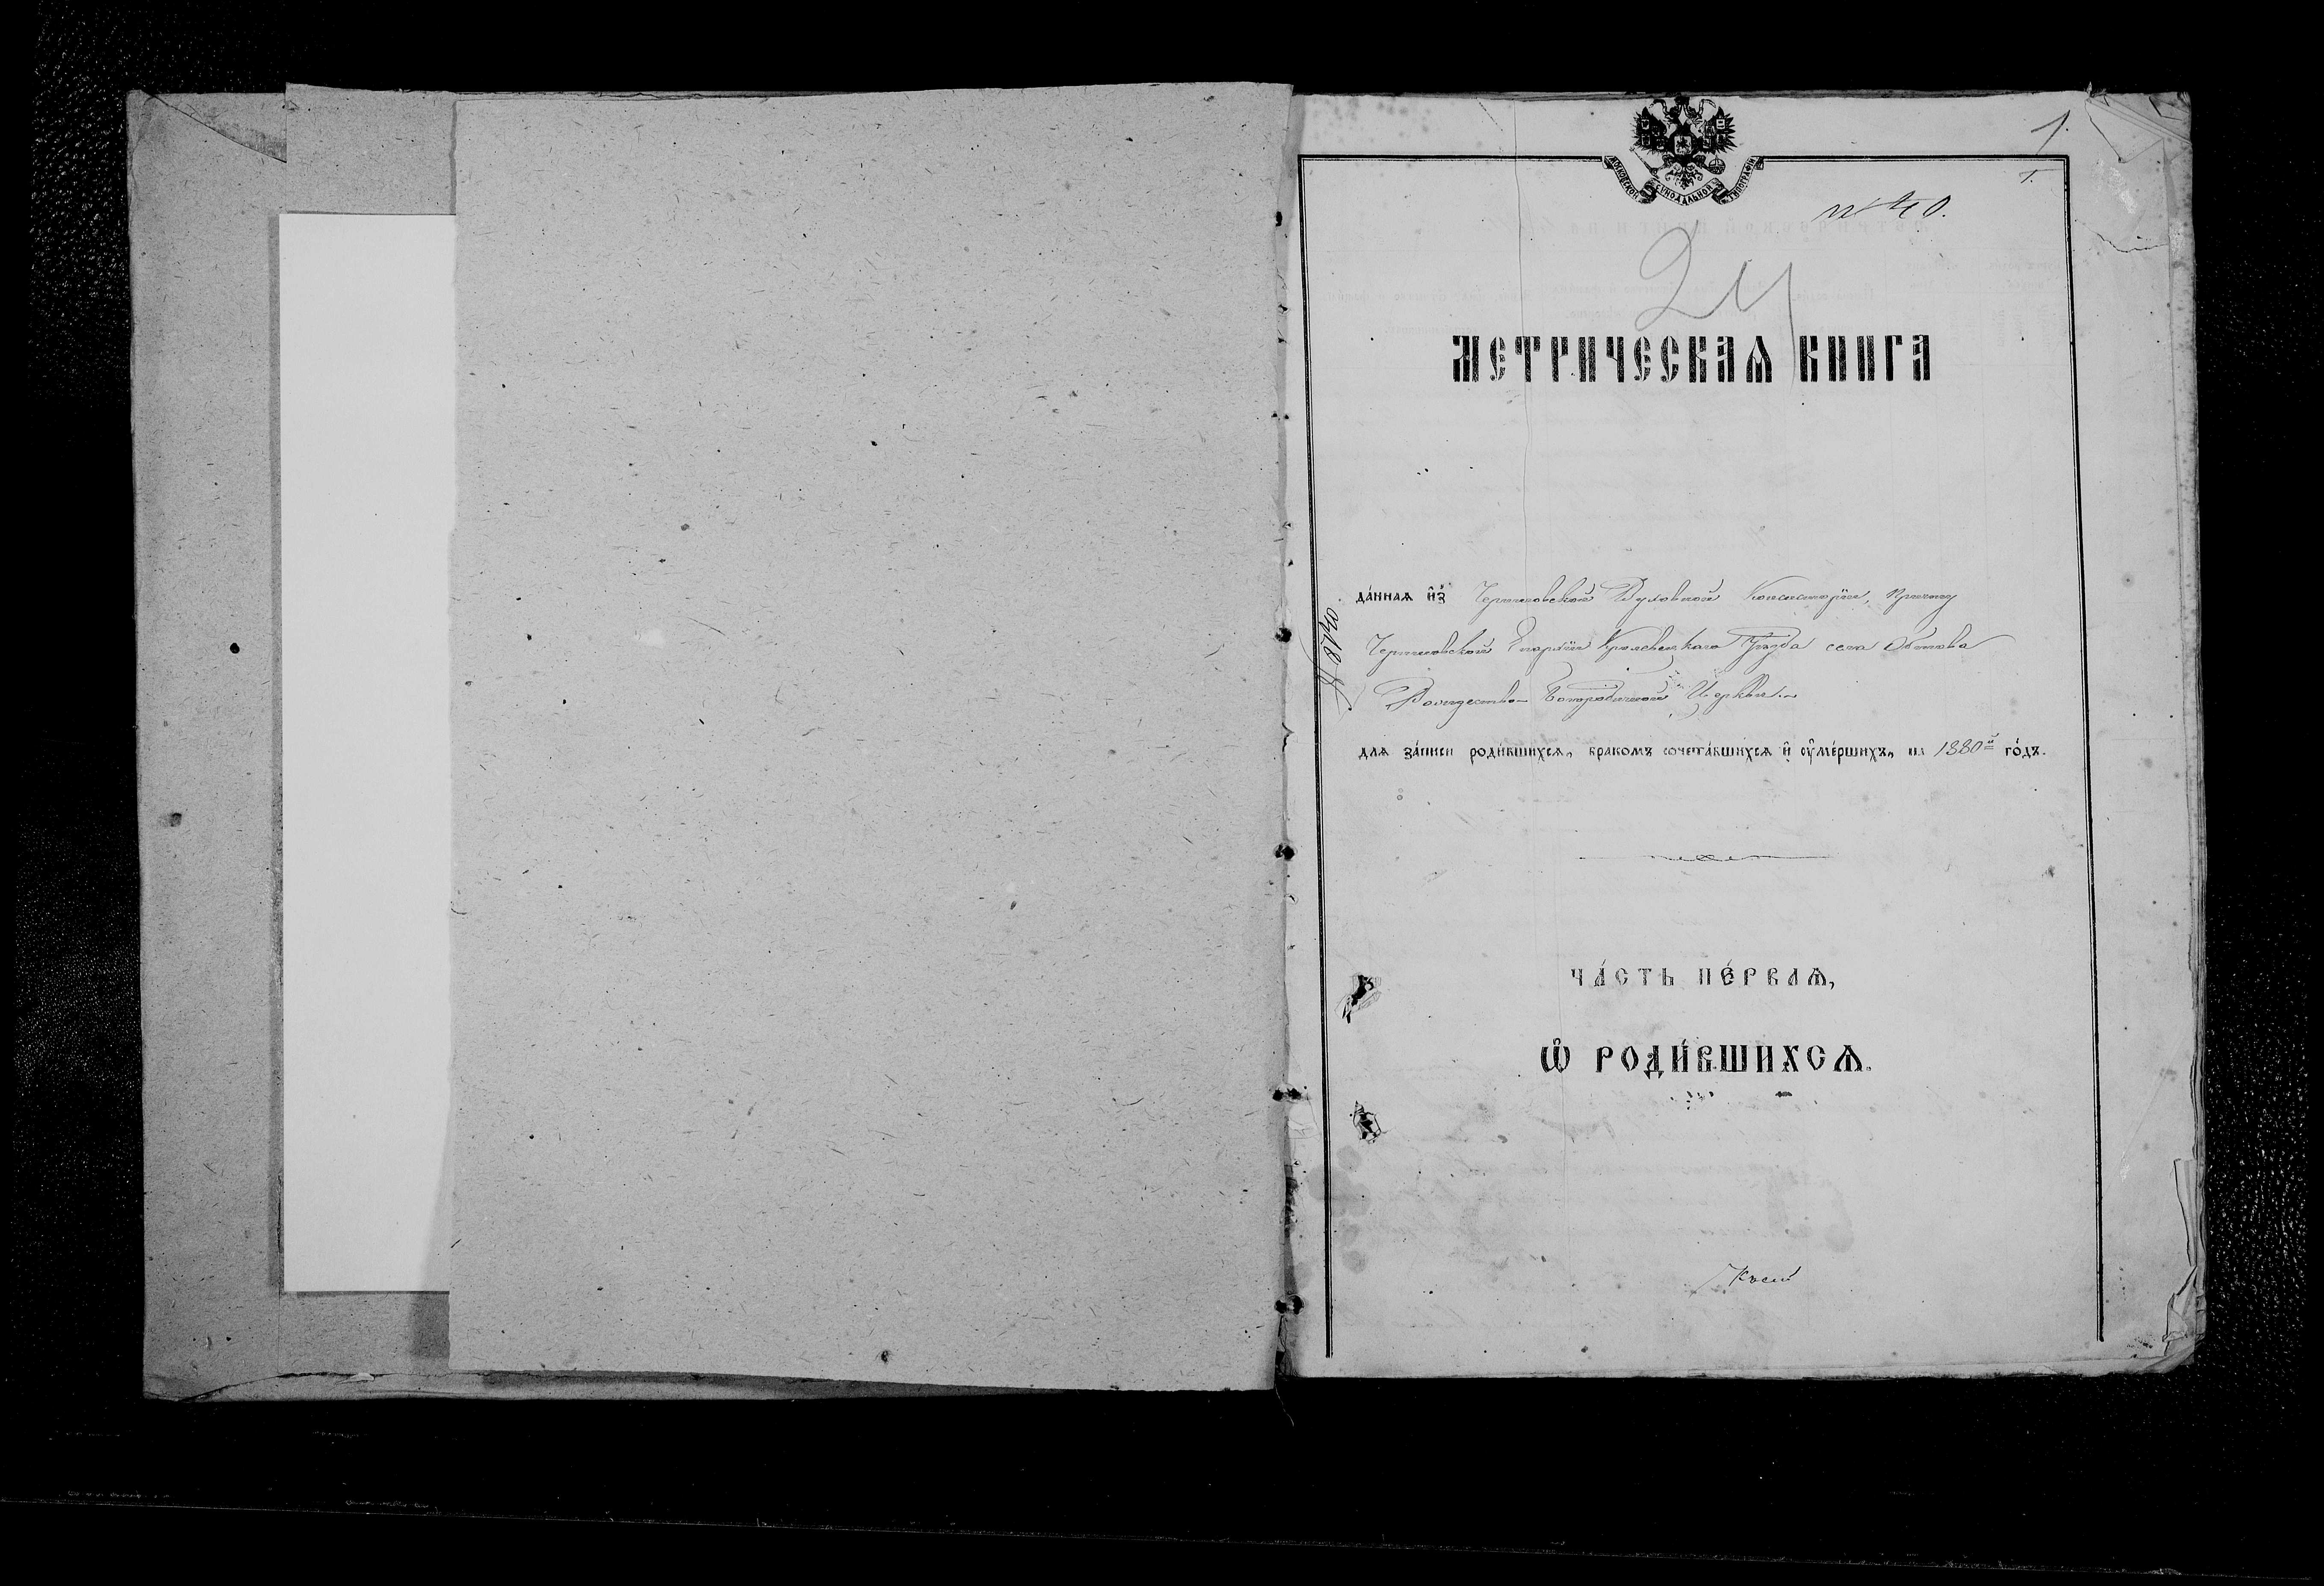 1.
МОСКОВСКОЙ СѴНОДАЛЬНОЙ ТИПОГРАФІИ
1.
№ 40.
24
МЕТРИЧЕСКАѦ КНИГА
да́ннаѧ и҆з̾ Черниговской Духовной Консисторіи, причту
Черниговской Епархіи Кролевецкаго Уѣзда села Обтова
Рождество-Богородичной Церкви.
длѧ за́писи роди́вшихсѧ, бракомъ сочета́вшихсѧ и҆ ᲂу҆ме́ршихъ, на 1880й го́дъ.
№ 8740
ЧА́СТЬ ПЕ́РВАѦ,
Ѽ РОДИ́ВШИХСѦ.